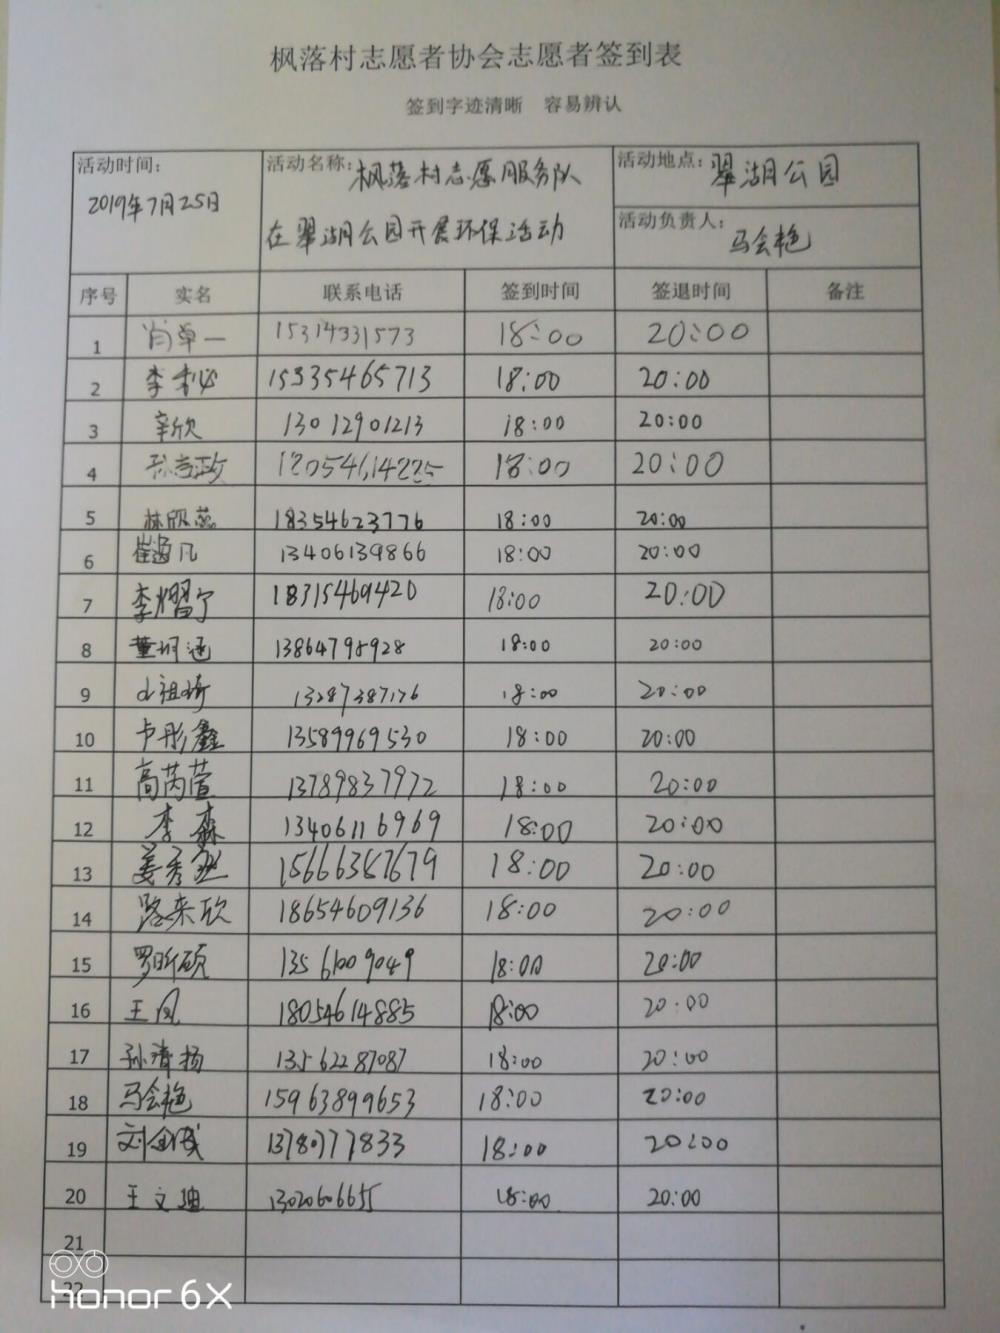 枫落村志愿者协会志愿者签到表
签到字迹清晰 容易辨认
活动时间: 2019年7月25日
活动名称: 枫落村志愿服务队
在翠湖公园开展环保活动
活动地点: 翠湖公园
活动负责人: 马会艳
序号 实名 联系电话 签到时间 签退时间 备注
1 肖卓一 15314331573 18:00 20:00
2 李 15335465713 18:00 20:00
3 辛欣 13012901213 18:00 20:00
4 18:00 20:00
5 林欣蕊 18354623776 18:00 20:00
6 凡 13406139866 18:00 20:00
7 李熠宁 18315469420 18:00 20:00
8 董珂涵 13864795928 18:00 20:00
9 祖琦 13287387176 18:00 20:00
10 卢彤鑫 13589969530 18:00 20:00
11 高芮萱 13789837972 18:00 20:00
12 李森 13406116969 18:00 20:00
13 姜秀 15666357679 18:00 20:00
14 路来欣 18654609136 18:00 20:00
15 罗昕硕 13561009049 18:00 20:00
16 王凤 18054614885 18:00 20:00
17 孙清扬 13562287087 18:00 20:00
18 马会艳 15963899653 18:00 20:00
19 刘 18:00 20:00
20 王文迪 13020606655 18:00 20:00
21
22
honor 6X